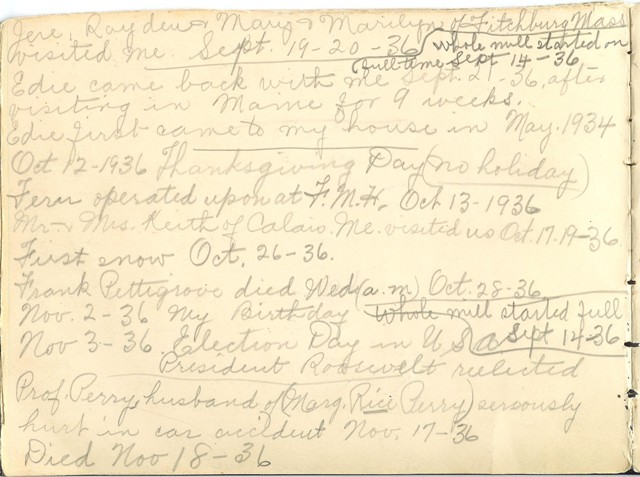 Jere, Rayden & Mary & Marilyn of Fitchburg Mass
visited me. Sept. 19-20-36
Whole mill started on
full-time Sept 14-36
Edie came back with me Sept. 21-36, after
visiting in Maine for 9 weeks.
Edie first came to my house in May. 1934
Oct 12-1936 Thanksgiving Day (no holiday)
Fern operated upon at F.M.H. Oct 13-1936
Mr & Mrs. Keith of Calais, Me. visited us Oct. 17.19-36.
First snow Oct. 26-36.
Frank Pettigrove died Wed (a.m) Oct. 28-36
Nov. 2-36 My Birthday Whole mill started full
Sept 14-36
Nov 3-36. Election Day in U S a
President Roosevelt reelected
Prof. Perry, husband of (Marg. Rice Perry) seriously
hurt in car accident Nov. 17-36
Died Nov 18-36